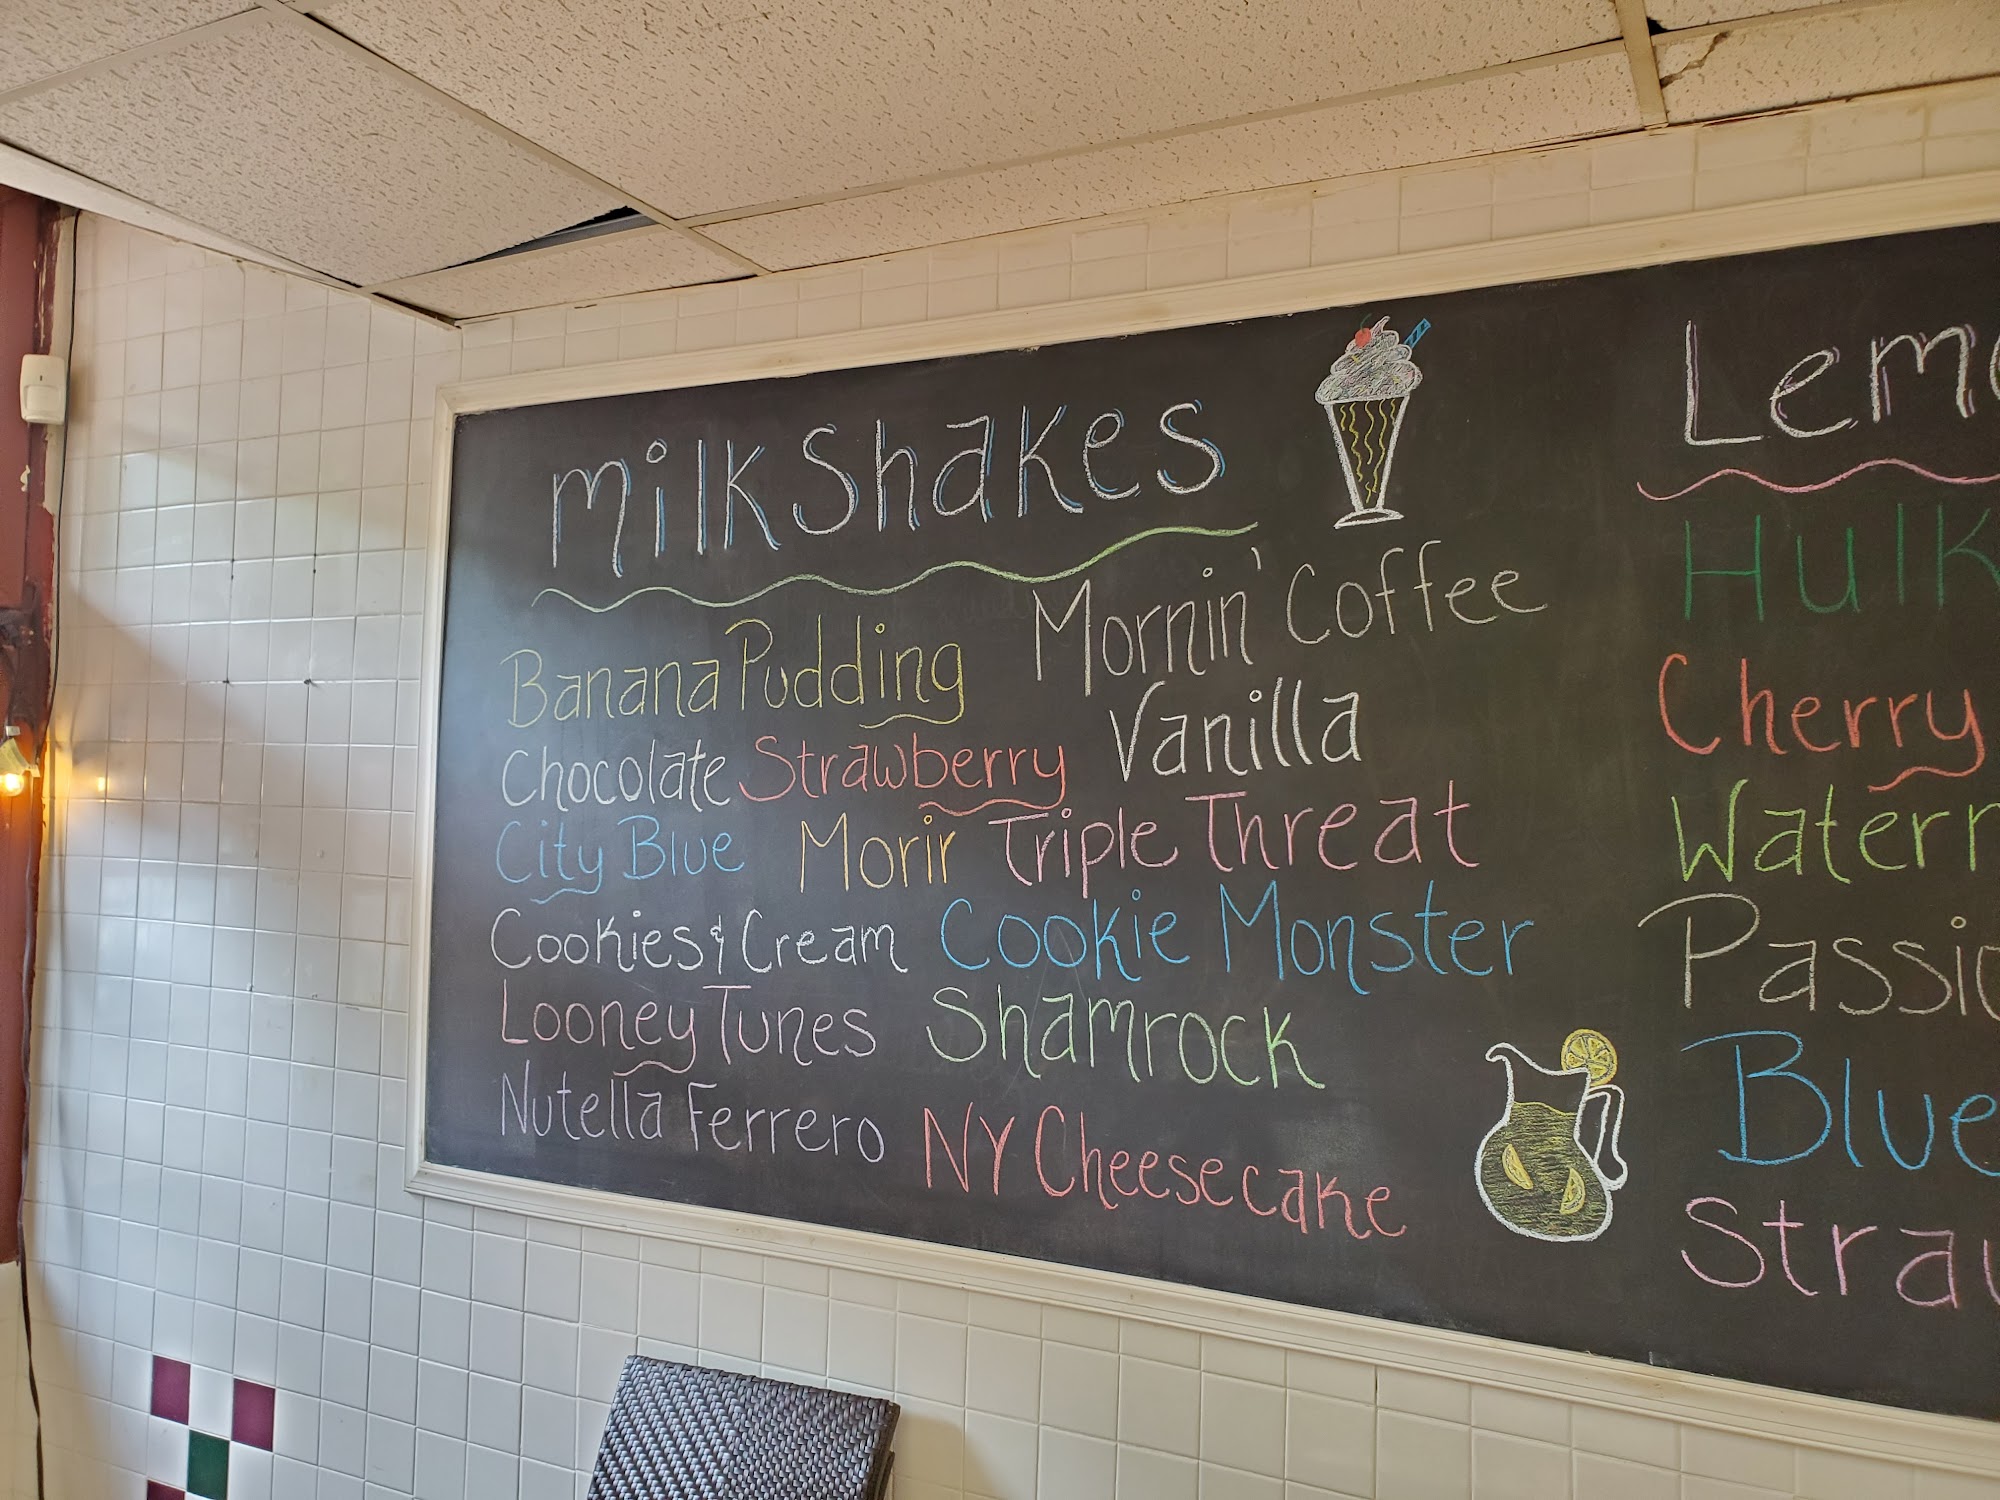 milkshakes
Banana Pudding Mornin' Coffee
Chocolate Strawberry Vanilla
City Blue Morir Triple Threat
Cookies & Cream Cookie Monster
Looney Tunes Shamrock
Nutella Ferrero NY Cheesecake
Lemo
Hulk
Cherry
Water
Passio
Blue
Straw